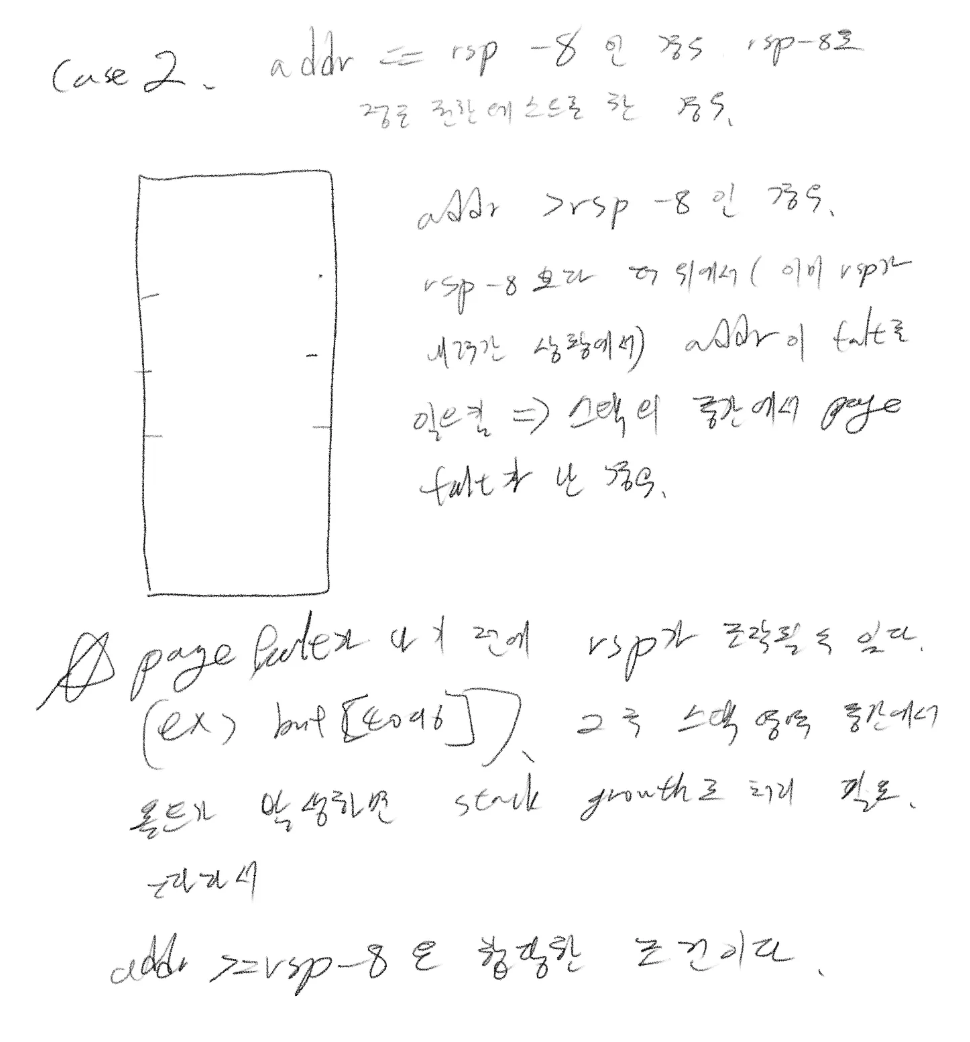 Case 2. addr == rsp -8 인 경우 rsp-8로
접근 권한 테스트를 한 경우.
addr >rsp -8 인 경우.
rsp-8 보다 더 위에서 ( 이미 rsp가
내려간 상황에서) addr이 falt를
일으킴 => 스택의 중간에서 page
falt가 난 경우.
page falt가 나기 전에 rsp가 조작될 수 있다.
(ex) buf [4096]). 그 후 스택 영역 중간에서
폴트가 발생하면 stack growth로 처리 필요.
따라서
addr >=rsp-8 은 합당한 조건이다.